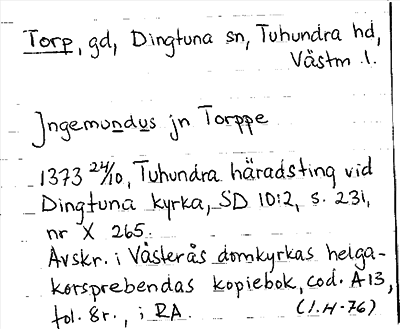 Torp, gd, Dingtuna sn, Tuhundra hd,
Västm l.
Jngemundus jn Torppe
1373 24/10, Tuhundra häradsting vid
Dingtuna kyrka, SD 10:2, s. 231,
nr X 265.
Avskr. i Västerås domkyrkas helga-
korsprebendas kopiebok, cod. A 13,
fol. 8r., i RA. (I.H-76)